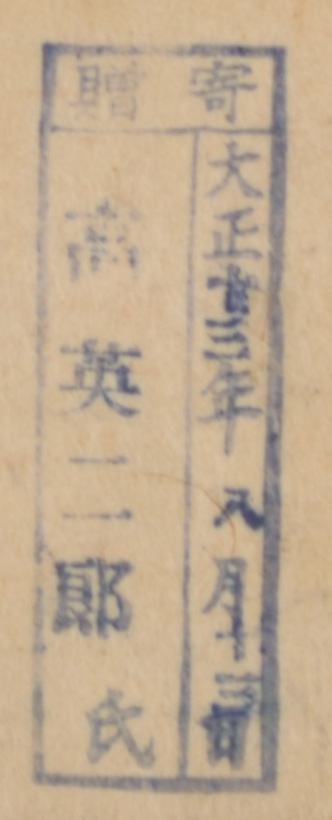 寄贈
大正廿三年八月十三日
英二郎氏